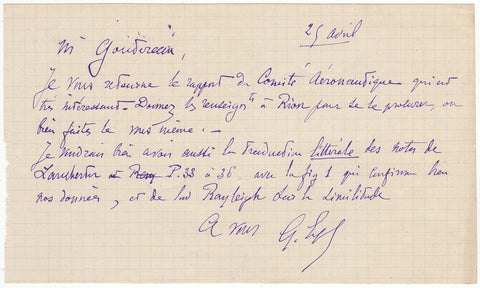 25 avril
Mr
Je vous retourne le rapport du Comité Aéronautique qui est
très intéressant. Donnez les renseigts à Rion pour se le procurer, ou
bien faites le vous même. —
Je voudrais bien avoir aussi la traduction littérale des notes de
P. 33 à 36 avec la fig 1 qui confirme bien
nos données, et de lord Rayleigh sur la similitude
A vous